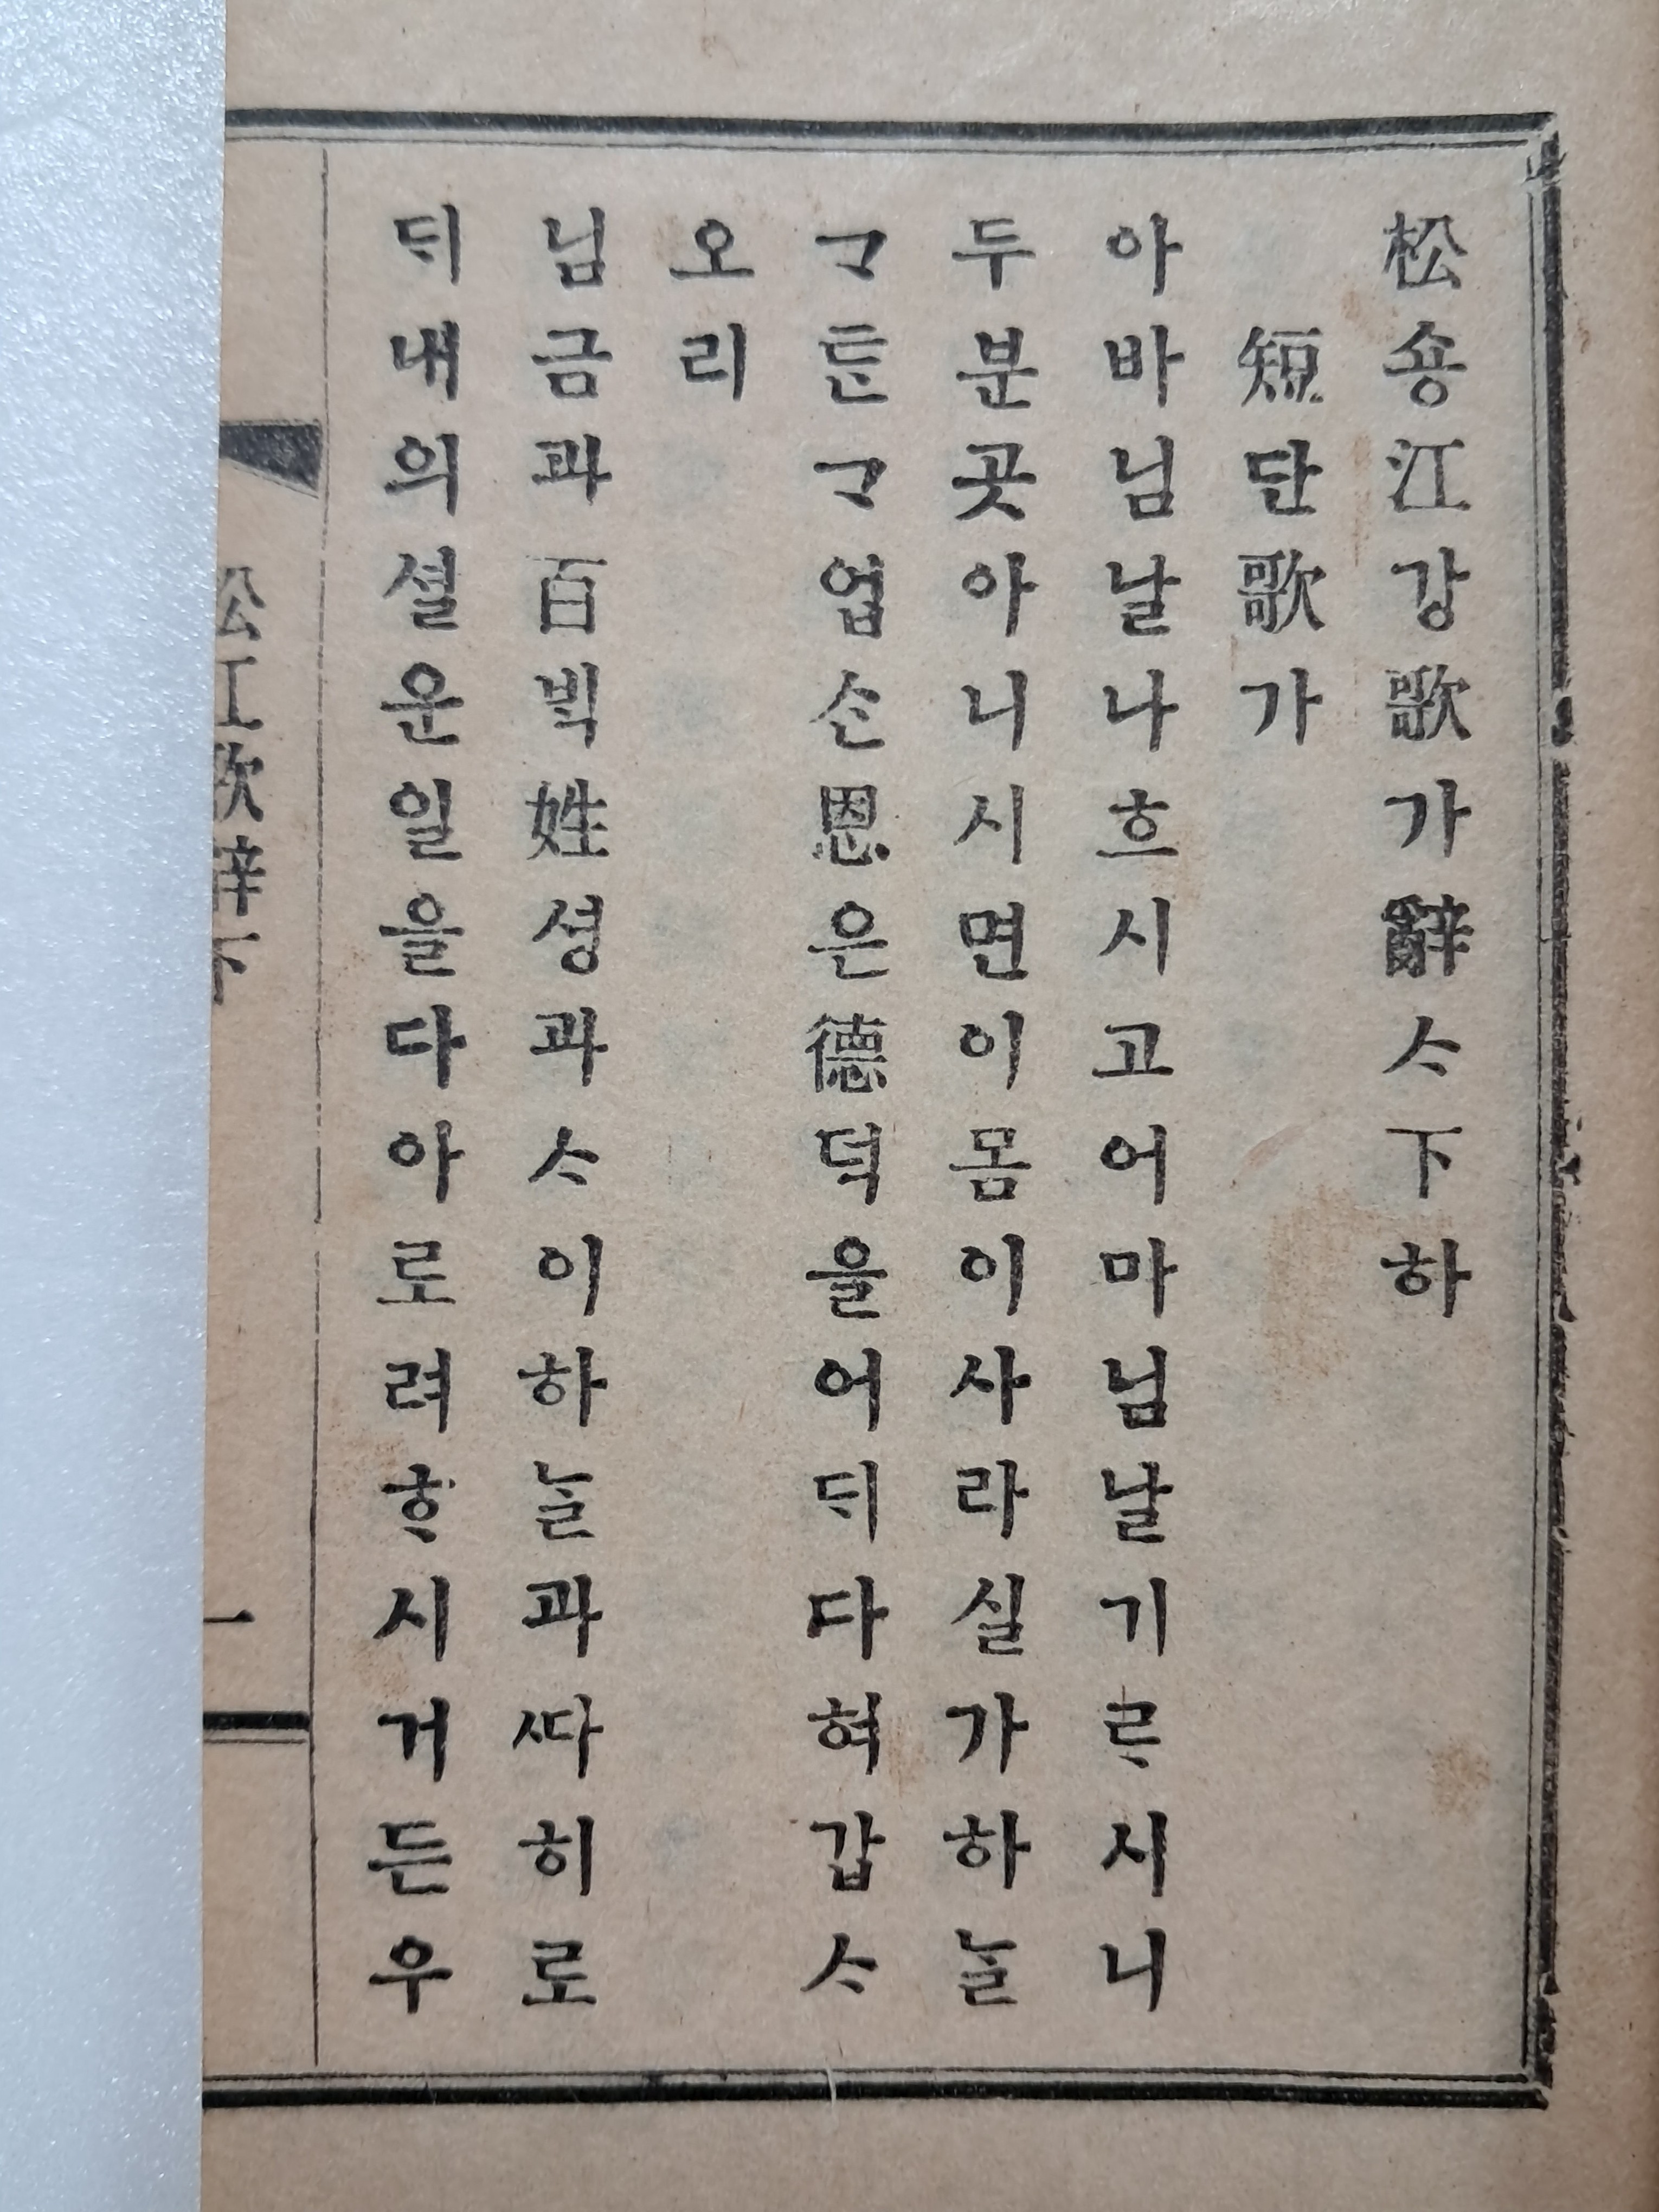 松숑江강歌가辭ᄉᆞ下하
短단歌가
아바님날나흐시고어마님날기ᄅᆞ시니
두분곳아니시면이몸이사라실가하ᄂᆞᆯ
ᄀᆞᄐᆞᆫᄀᆞ업ᄉᆞᆫ恩은德덕을어ᄃᆡ다혀갑ᄉᆞ
오리
님금과百ᄇᆡᆨ姓셩과ᄉᆞ이하ᄂᆞᆯ과ᄯᅡ히로
ᄃᆡ내의셜운일을다아로려ᄒᆞ시거든우
松江歌辭下
一